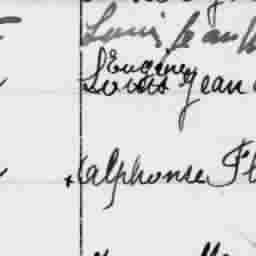 Louis Jean
Eugène
Louis Jean
Alphonse Fl